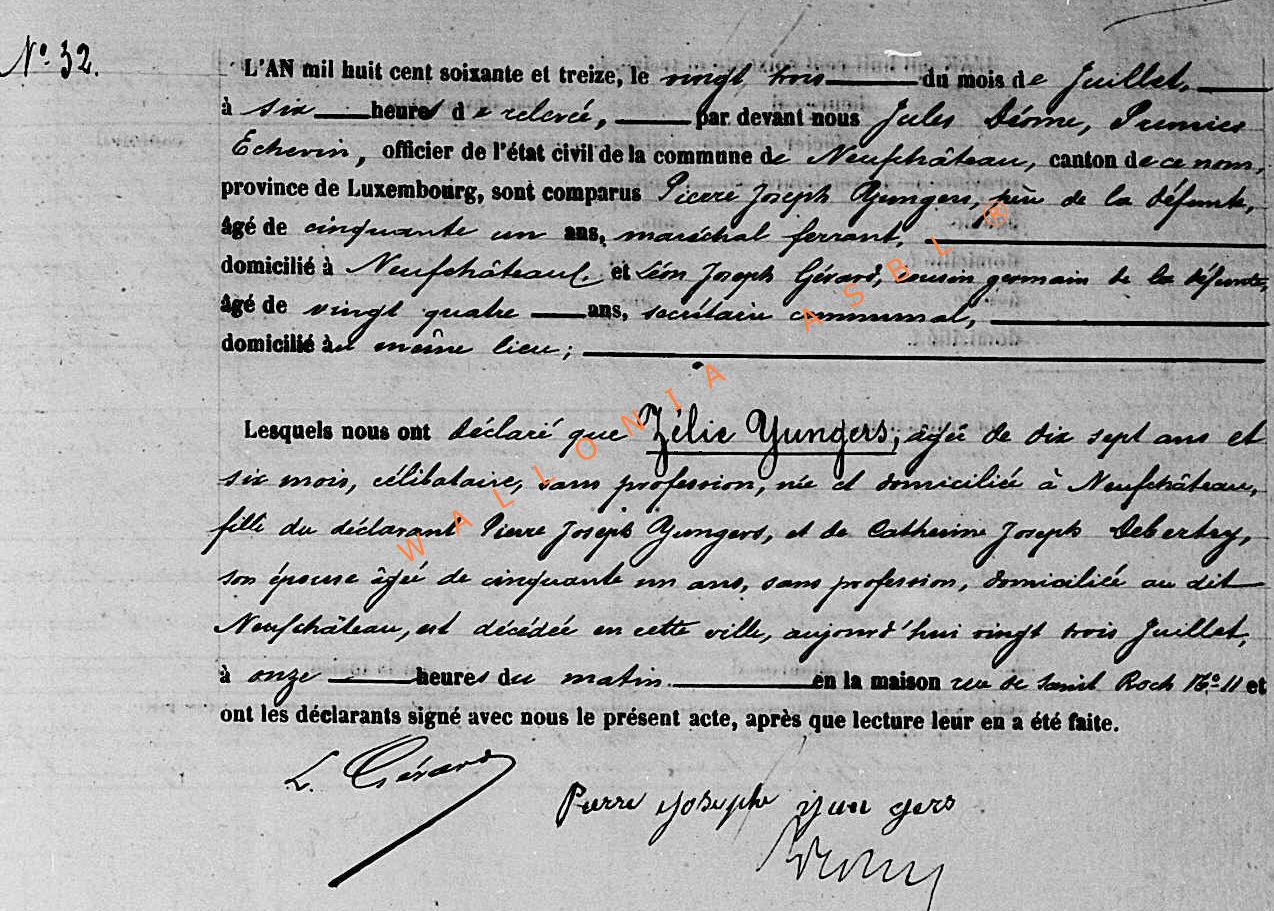 N.º 32.
L'AN mil huit cent soixante et treize, le vingt trois du mois de Juillet,
à six heures de relevée, par devant nous Jules Déome, Premier
Echevin, officier de l'état civil de la commune de Neufchâteau, canton de ce nom,
province de Luxembourg, sont comparus Pierre Joseph Yungers, père de la défunte,
âgé de cinquante un ans, maréchal ferrant,
domicilié à Neufchâteau, et Léon Joseph Gérard, cousin germain de la défunte,
âgé de vingt quatre ans, secrétaire communal,
domicilié au même lieu;
Lesquels nous ont déclaré que Zélie Yungers, âgée de dix sept ans et
six mois, célibataire, sans profession, née et domiciliée à Neufchâteau,
fille du déclarant Pierre Joseph Yungers, et de Catherine Joseph Debertry,
son épouse âgée de cinquante un ans, sans profession, domiciliée au dit
Neufchâteau, est décédée en cette ville, aujourd'hui vingt trois Juillet,
à onze heures du matin en la maison rue de Saint Roch N.º 11 et
ont les déclarants signé avec nous le présent acte, après que lecture leur en a été faite.
L. Gérard
Pierre Josephe yungers
WALLONIA ASBL ®